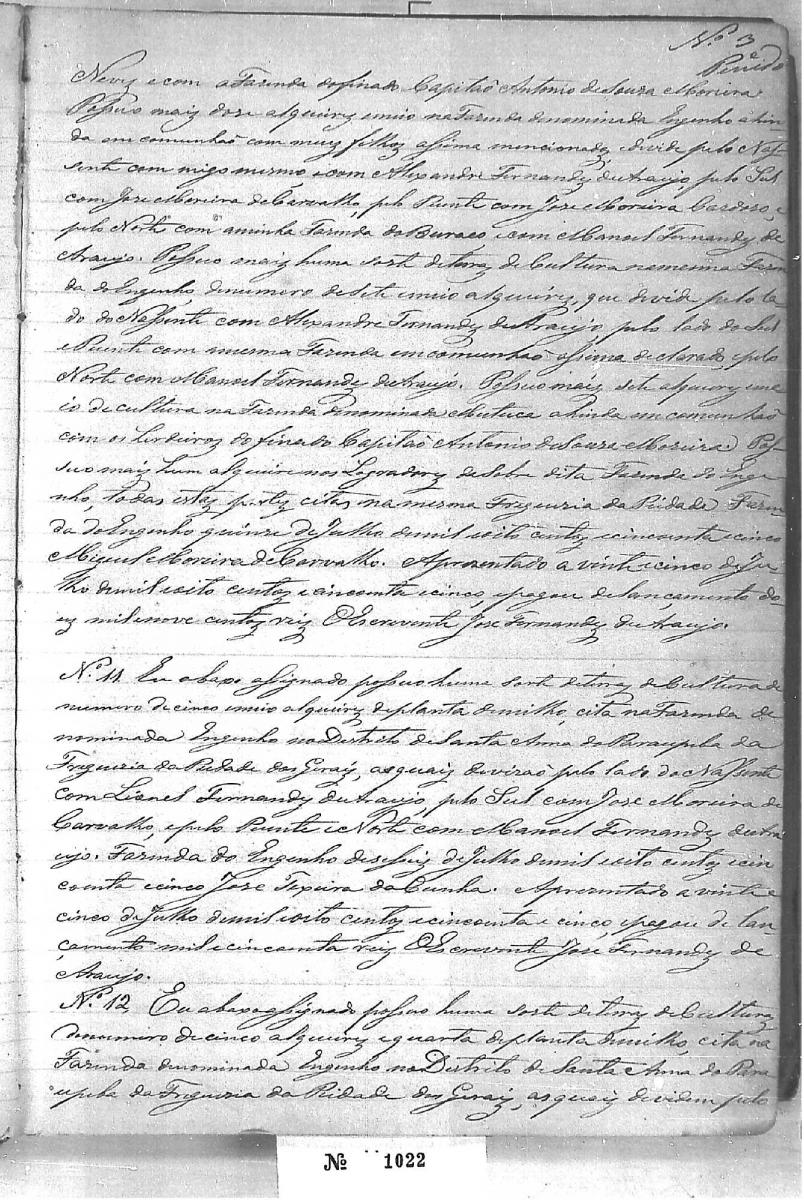 Nº 3
Penido
Neves e com a Fazenda do finado Capitaõ Antonio de Souza Moreira.
Possuo mais dose alqueires emeio na Fazenda denominada Engenho ahin-
da em comunhaõ com meus filhos assima mencionados, edivide pelo Nas-
sente com migo mesmo, e com Alexandre Fernandes de Araujo, pelo Sul
com Jose Moreira de Carvalho, pelo Puente com Jose Moreira Cardoso, e
pelo Norte com aminha Fazenda do Buraco e com Manoel Fernandes de
Araujo. Possuo mais huma sorte de terras de Cultura namesma Fazen-
da do Engenho, do numero de sete emeio alqueires, que divide pelo la-
do do Nassente com Alexandre Fernandes de Araujo, pelo lado do Sul
e Puente com amesma Fazenda em comunhaõ assima declarado, epelo
Norte com Manoel Fernandes de Araujo. Possuo mais, sete alqueires eme-
io de cultura na Fazenda denominada Mutuca ahinda em comunhaõ
com os herdeiros do finado Capitaõ Antonio de Souza Moreira. Pos-
suo mais hum alqueire nos Logradores da sobre dita Fazenda do Enge-
nho, todas estas partes citas na mesma Freguezia da Piedade. Fazen-
da do Engenho quinze de Julho demil eoito centos ecincoenta ecinco
Miguel Moreira de Carvalho. Aprezentado a vinte ecinco de Ju-
lho demil eoito centos ecincoenta ecinco, epagou de lançamento do-
us mil enove centos reis O Escrevente Jose Fernandes de Araujo.
Nº 11 Eu abaxo assignado possuo huma sorte de terras de Cultura do
numero de cinco emeio alqueires de planta de milho, cita na Fazenda de-
nominada Engenho no Distrito de Santa Anna do Paraupeba da
Freguezia da Piedade dos Gerais, as quais devizaõ pelo lado do Nassente
com Lionel Fernandes de Araujo, pelo Sul com Jose Moreira de
Carvalho, epelo Puente e Norte com Manoel Fernandes de Ara-
ujo. Fazenda do Engenho deseseis de Julho demil eoito centos ecin
coenta ecinco Jose Texeira da Cunha. Aprezentado a vinte e
cinco de Julho demil eoito centos ecincoenta e cinco, epagou de lan-
çamento mil ecincoenta reis O Escrevente Jose Fernandes de
Araujo.
Nº 12 Eu abaxo assignado possuo huma sorte de terras de Cultura,
do numero de cinco alqueires equarta de planta de milho, cita na
Fazenda denominada Engenho no Distrito de Santa Anna do Para
upeba da Freguezia da Piedade dos Gerais, as quais dividem pelo
Nº 1022